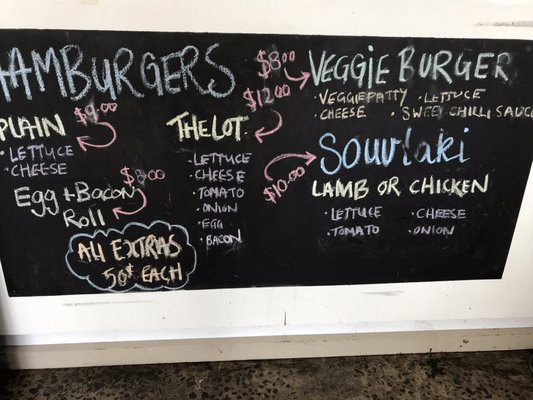 HAMBURGERS
$9.00
PLAIN
· LETTUCE
· CHEESE
$8.00
Egg + Bacon
Roll
All EXTRAS
50¢ EACH
$12.00
THE LOT
· LETTUCE
· CHEESE
· TOMATO
· ONION
· EGG
· BACON
$8.00
VEGGIE BURGER
· VEGGIE PATTY · LETTUCE
· CHEESE · SWEET CHILLI SAUCE
$10.00
Souvlaki
LAMB OR CHICKEN
· LETTUCE · CHEESE
· TOMATO · ONION